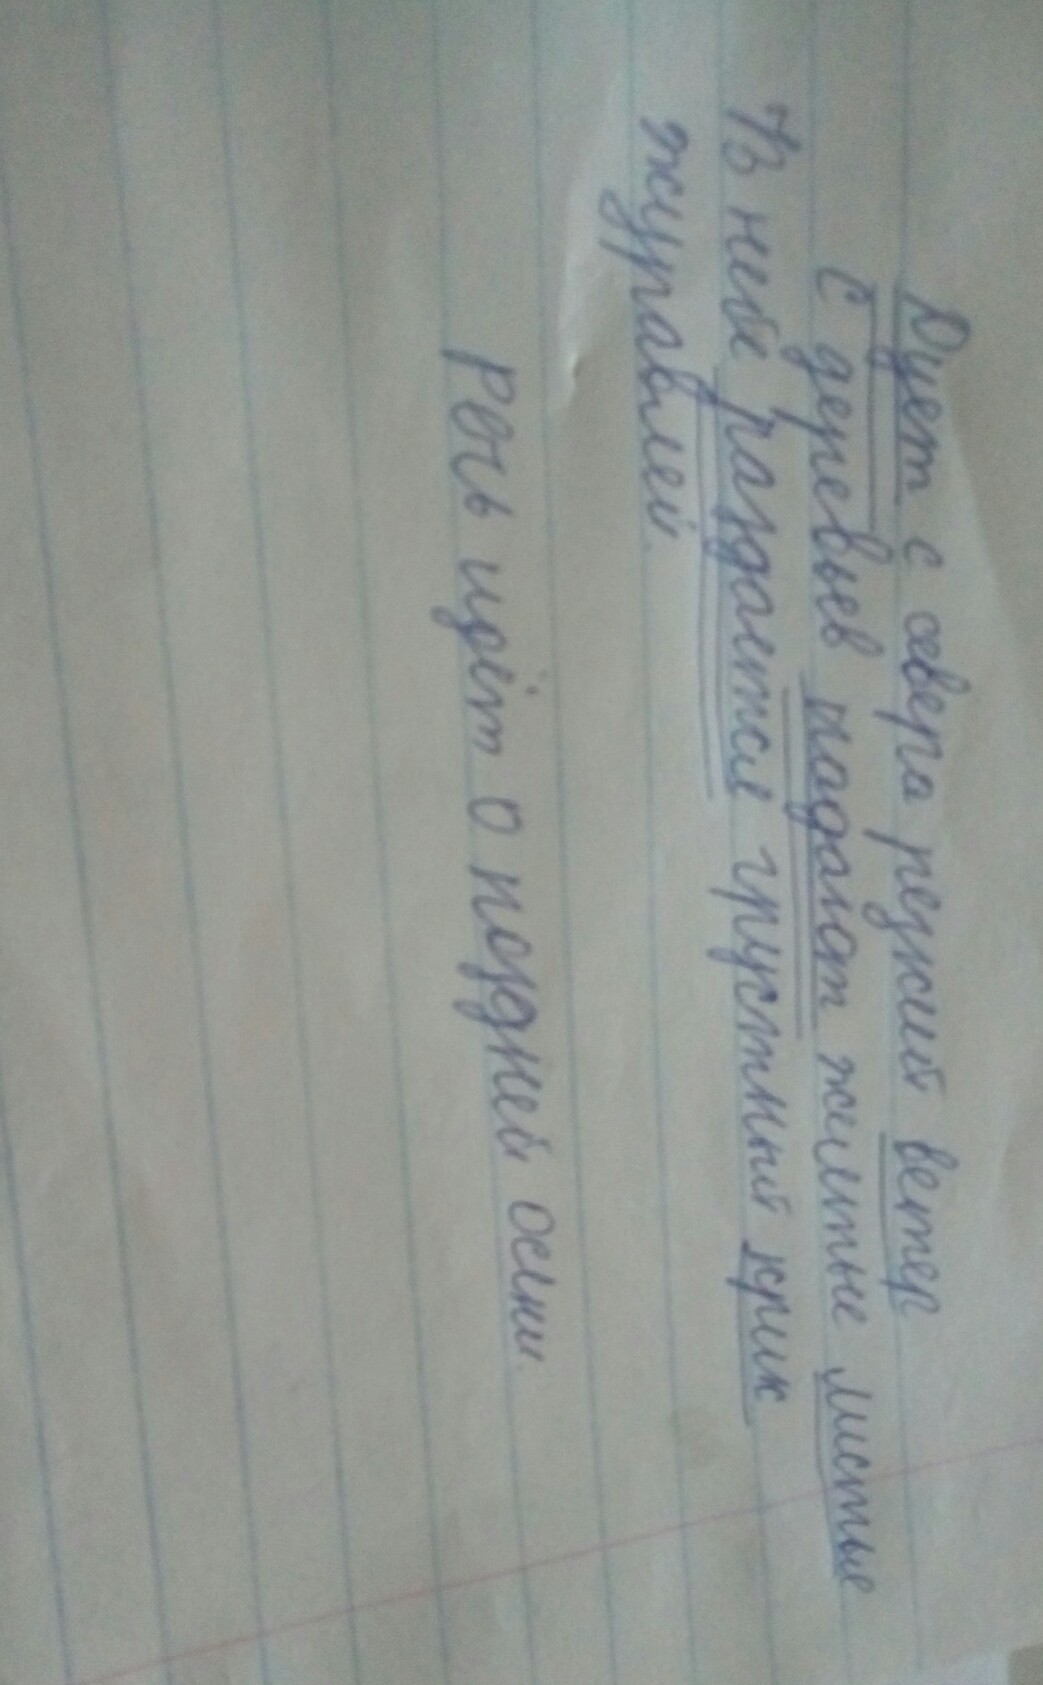 Дует с севера резкий ветер
С деревьев падают желтые листья
В небе раздается грустный крик
журавлей.
Речь идёт о поздней осени.